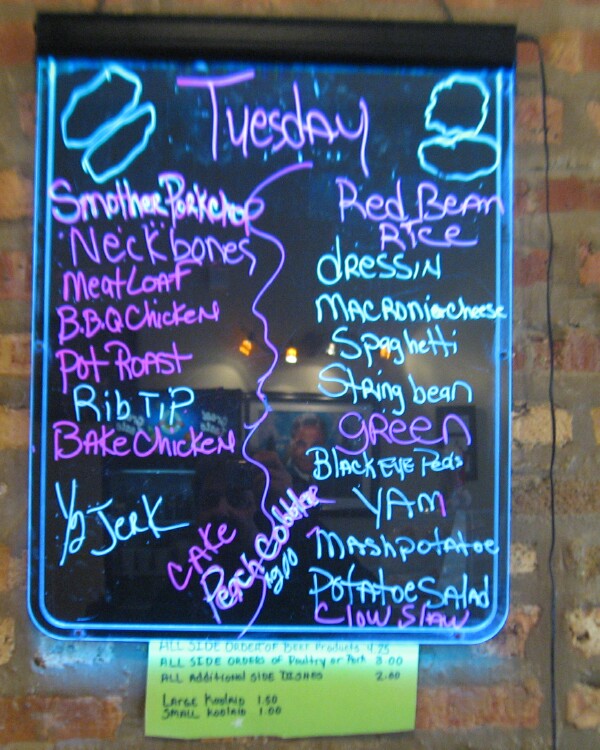 Tuesday
Smother Porkchop
Neckbones
MeatLoaf
B.B.Q Chicken
Pot Roast
Rib Tip
Bake Chicken
1/2 Jerk
CAKE
Peach Cobbler
Red Bean
Rice
dressin
MACRONi&cheese
Spaghetti
String bean
green
BlackEYE Peas
YAM
Mashpotatoe
Potatoe Salad
Clow Slaw
ALL SIDE ORDER OF Beef Products 4.75
ALL SIDE ORDERS of Poultry or Pork 3.00
ALL Additional SIDE DISHES 2.00
LARGE KoolAid 1.50
SMALL KoolAid 1.00